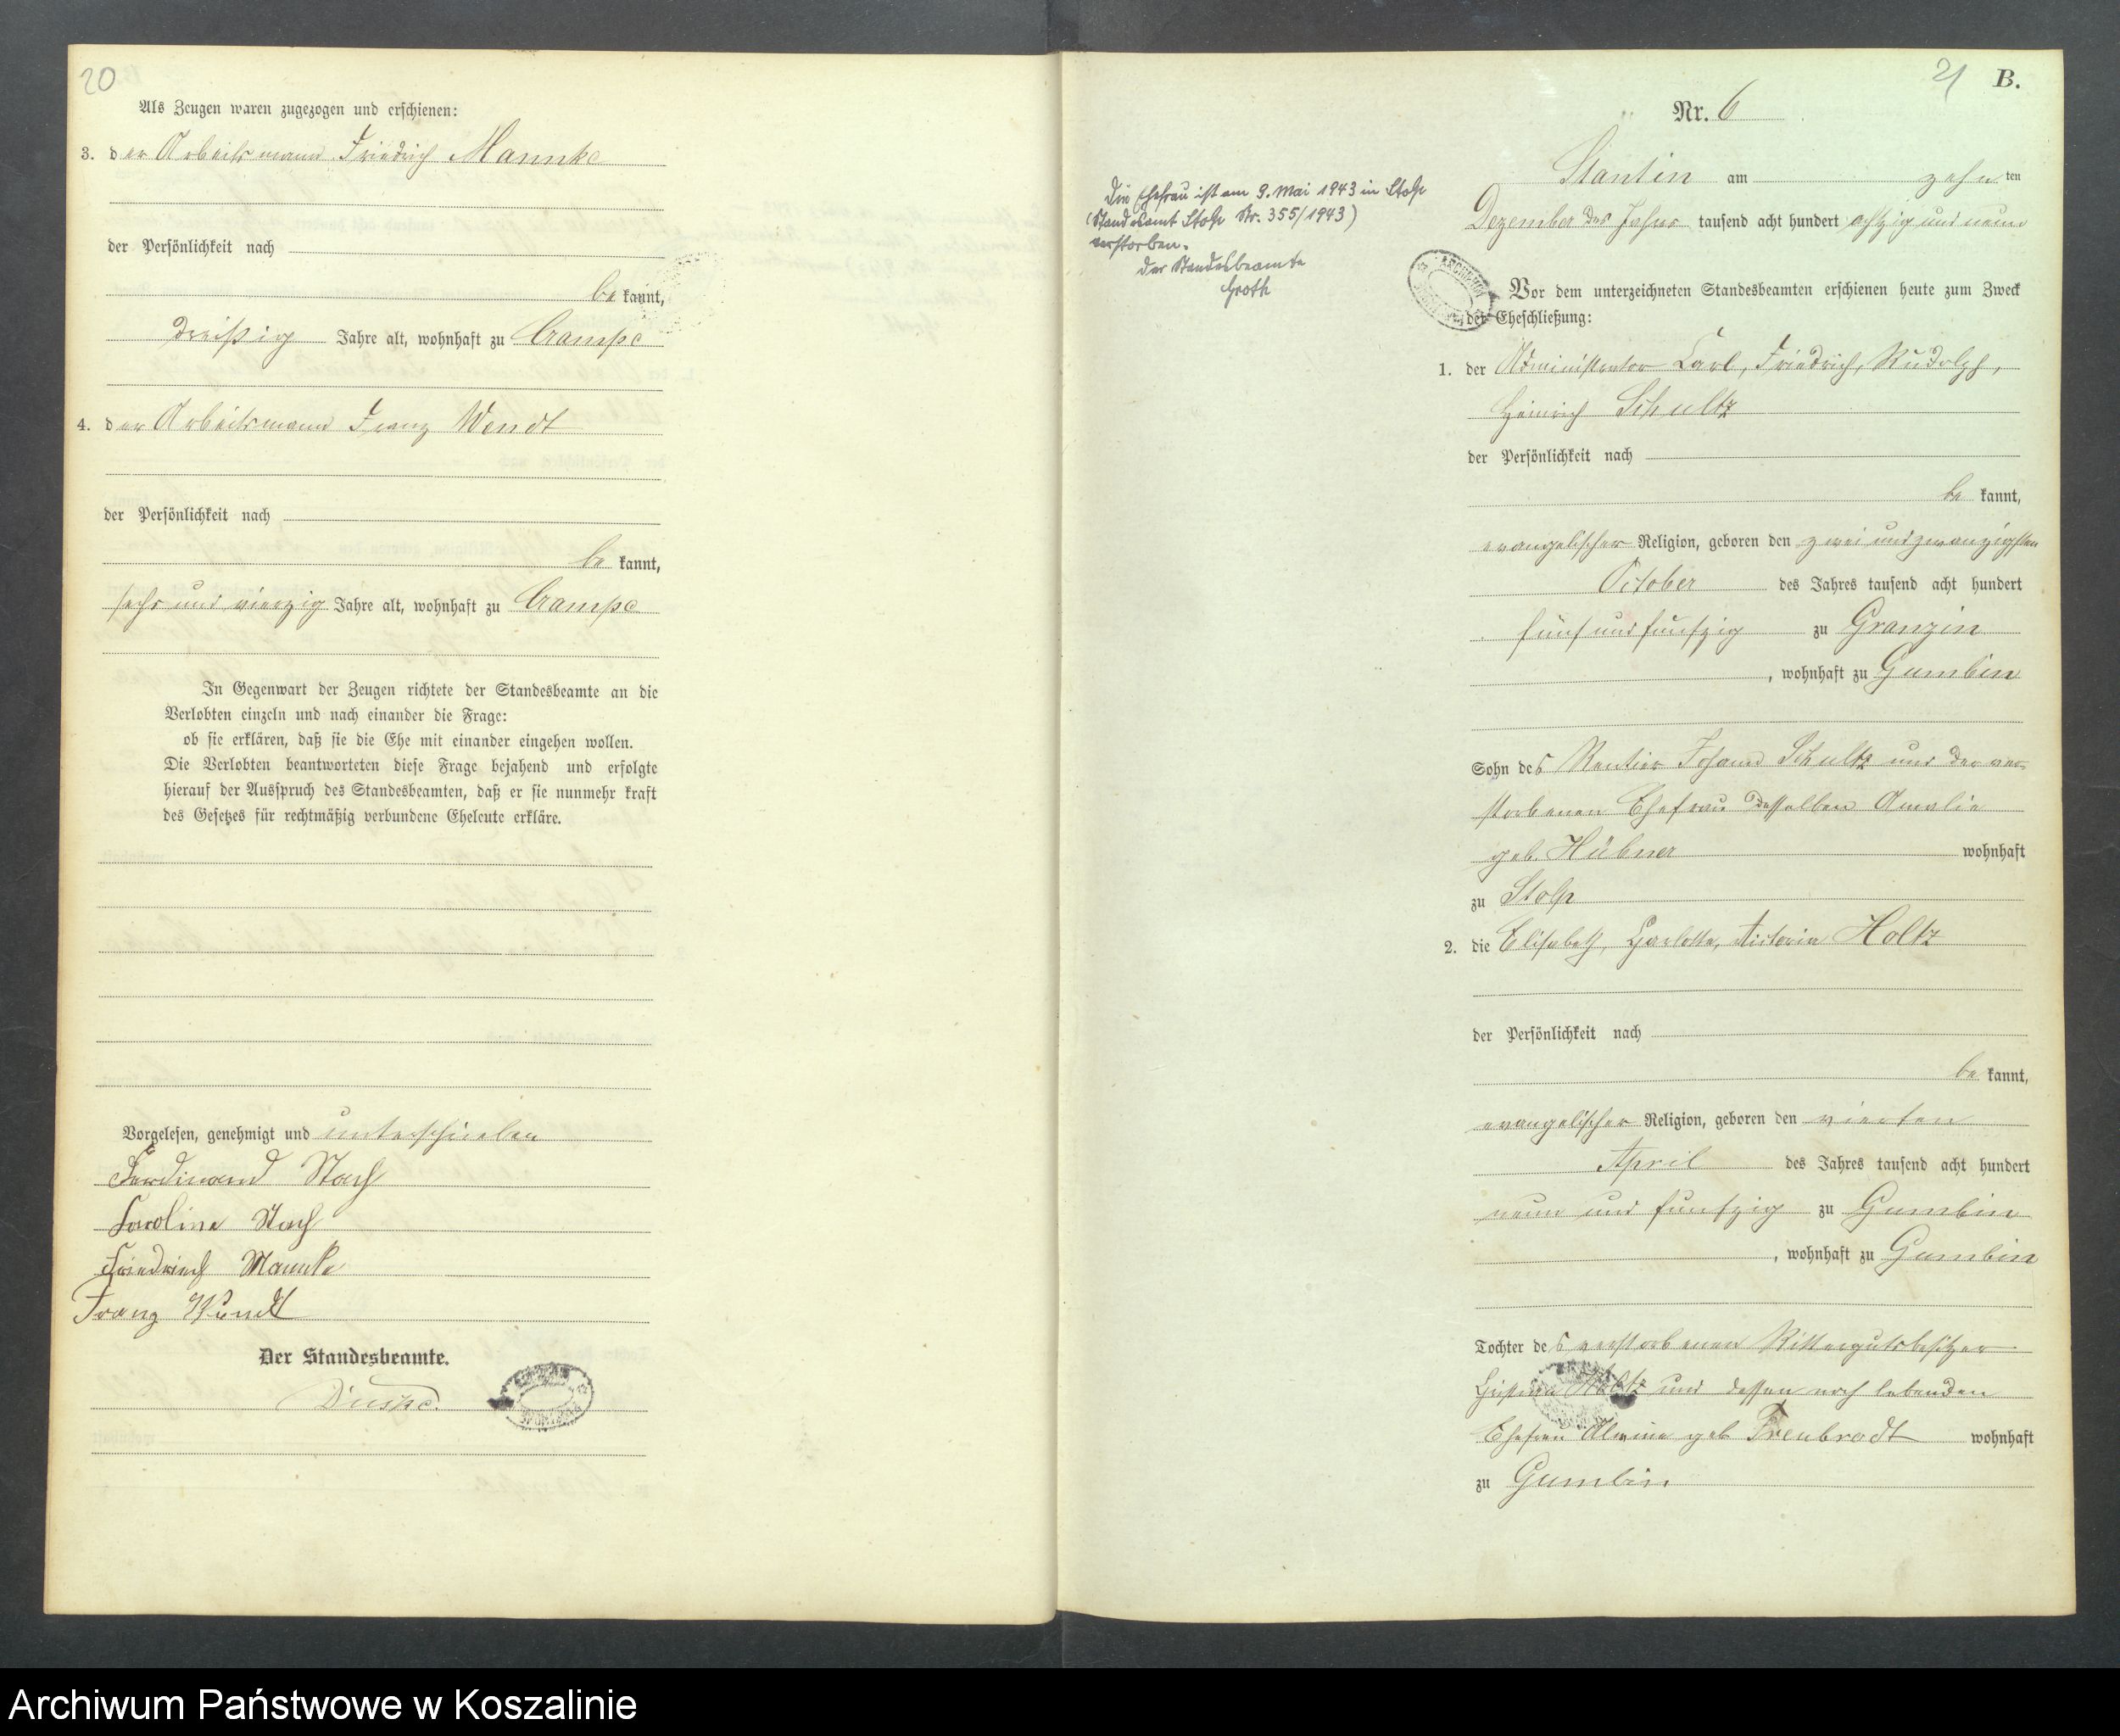 20
Als Zeugen waren zugezogen und erschienen:
3. der Arbeitsmann Friedrich Mannke
der Persönlichkeit nach
bekannt,
dreißig Jahre alt, wohnhaft zu Crampe
4. der Arbeitsmann Franz Wendt
der Persönlichkeit nach
bekannt,
sechs und vierzig Jahre alt, wohnhaft zu Crampe
In Gegenwart der Zeugen richtete der Standesbeamte an die
Verlobten einzeln und nach einander die Frage:
ob sie erklären, daß sie die Ehe mit einander eingehen wollen.
Die Verlobten beantworteten diese Frage bejahend und erfolgte
hierauf der Ausspruch des Standesbeamten, daß er sie nunmehr kraft
des Gesetzes für rechtmäßig verbundene Eheleute erkläre.
Vorgelesen, genehmigt und unterschrieben
Ferdinand Stach
Caroline Stach
Friedrich Mannke
Franz Wendt
Der Standesbeamte.
21 B.
Nr. 6
Stantin am zehnten
Dezember des Jahres tausend acht hundert achtzig und neun
Die Ehefrau ist am 9. Mai 1943 in Stolp
(Standesamt Stolp Nr. 355/1943)
verstorben.
Der Standesbeamte
Groth
Vor dem unterzeichneten Standesbeamten erschienen heute zum Zweck
der Eheschließung:
1. der Administrator Carl, Friedrich, Rudolph,
Heinrich Schultz
der Persönlichkeit nach
bekannt,
evangelischer Religion, geboren den zwei und zwanzigsten
October des Jahres tausend acht hundert
fünf und fünfzig zu Granzin
, wohnhaft zu Gumbin
Sohn des Rentier Johann Schultz und der ver-
storbenen Ehefrau desselben Amalie
geb. Hübner wohnhaft
zu Stolp
2. die Elisabeth, Charlotte, Victoria Holtz
der Persönlichkeit nach
bekannt,
evangelischer Religion, geboren den vierten
April des Jahres tausend acht hundert
neun und fünfzig zu Gumbin
, wohnhaft zu Gumbin
Tochter des verstorbenen Rittergutsbesitzer
Holtz und dessen noch lebenden
Ehefrau Alwine geb Treubrodt wohnhaft
zu Gumbin
Archiwum Państwowe w Koszalinie